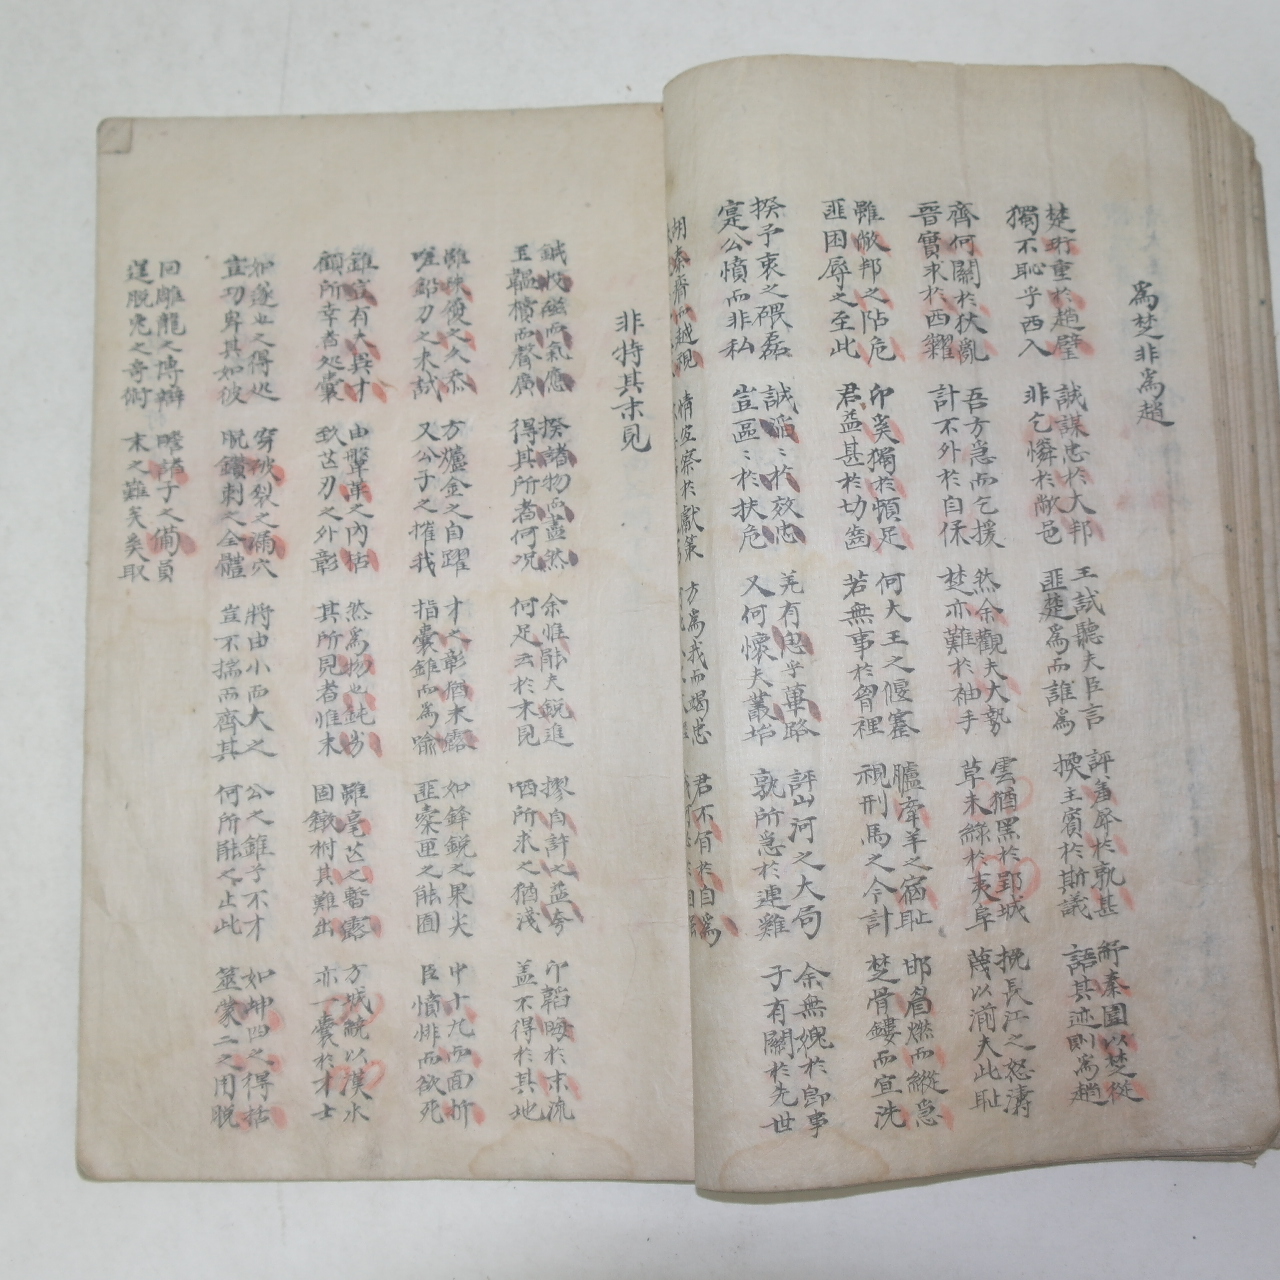 爲楚非爲趙
楚珩重於趙璧
獨不恥乎西入
誠謀忠於大邦
非乞憐於敝邑
王試聽夫臣言
匪楚爲而誰爲
評羞辱於孰甚
換主賓於斯議
紓秦圍以楚從
語其迹則爲趙
齊何關於扶亂
晉實求於西糴
吾方急而乞援
計不外於自保
然余觀夫大勢
楚亦難於袖手
雲猶黑於郢城
草未綠於夷阜
挽長江之怒濤
蔑以湔夫此恥
雖敝邦之阽危
匪困辱之至此
卬奚獨於頓足
君益甚於切齒
何大王之偃蹇
若無事於胷裡
臚牽羊之宿恥
視刑馬之今計
邯眉燃而縱急
楚骨鏤而宜洗
揆予衷之礧磊
寔公憤而非私
誠滔〻於效忠
豈區〻於扶危
羌有思乎蓽路
又何懷夫叢坮
評山河之大局
孰所急於連雞
余無愧於卽事
子有關於先世
胡秦齊而越視
情宜察於獻策
方爲我而竭忠
君不有於自爲
非特其末見
鍼投磁而氣應
玉韞櫝而聲廣
揆諸物而盡然
得其所者何況
余惟能夫銳進
何足云於末見
摎自許之益夸
哂所求之猶淺
卬韜晦於末流
盖不得於其地
之久忝
嗟鉛刀之未試
方爐金之自躍
又公子之摧我
才之彰猶末露
指囊錐而爲喩
如鋒銳之果尖
匪橐匣之能囿
中十九而面折
臣憤悱而欲死
錐宜有大異才
顧所幸者処囊
由鞶革之內括
致芒刃之外彰
然爲物也鈍劣
其所見者惟末
雖毫芒之暫露
固鐓柎其難出
方城銳以漢水
亦一囊於才士
如遂也之得処
豈功卑其如彼
穿破裂之漏穴
脫鑽刺之全體
將由小而大之
豈不揣而齊其
公之錐子不才
何所能之止此
如坤四之得括
筮蒙二之用脫
回雕龍之博辯
逞脫兔之奇術
瞻諸子之備員
末之難矣奚取